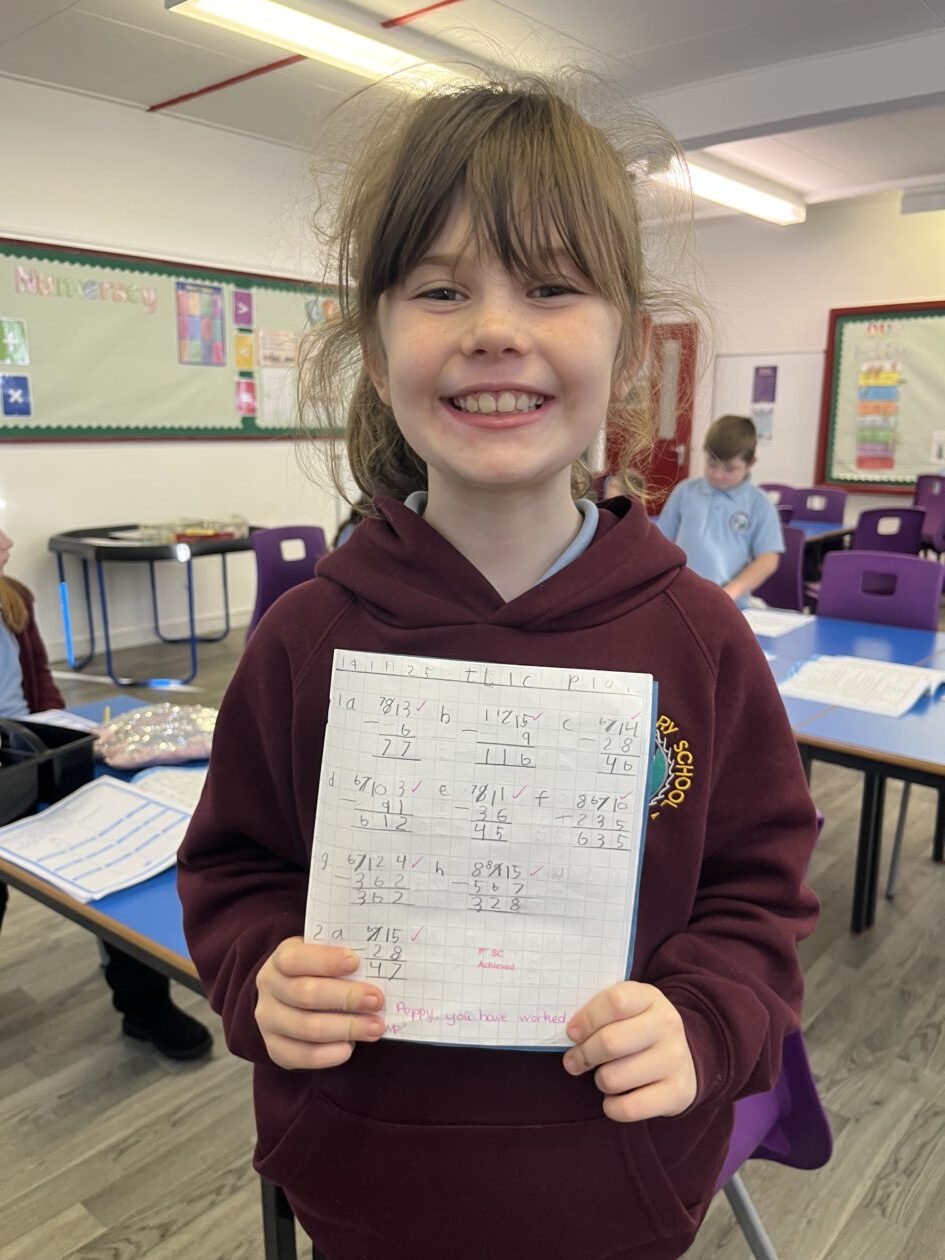 Numeracy
>
×
RY SCHOOL
1a 7813 ✓ b 11215 ✓ c 6714 ✓
- 6 - 9 - 28
77 116 46
d 67103 ✓ e 7811 ✓ f 86710
- 91 - 36 + 235
612 45 635
g 67124 ✓ h 88915 ✓
- 362 - 567
362 328
2a 6715 ✓
- 28
47
SC
Achieved
Poppy. you have worked